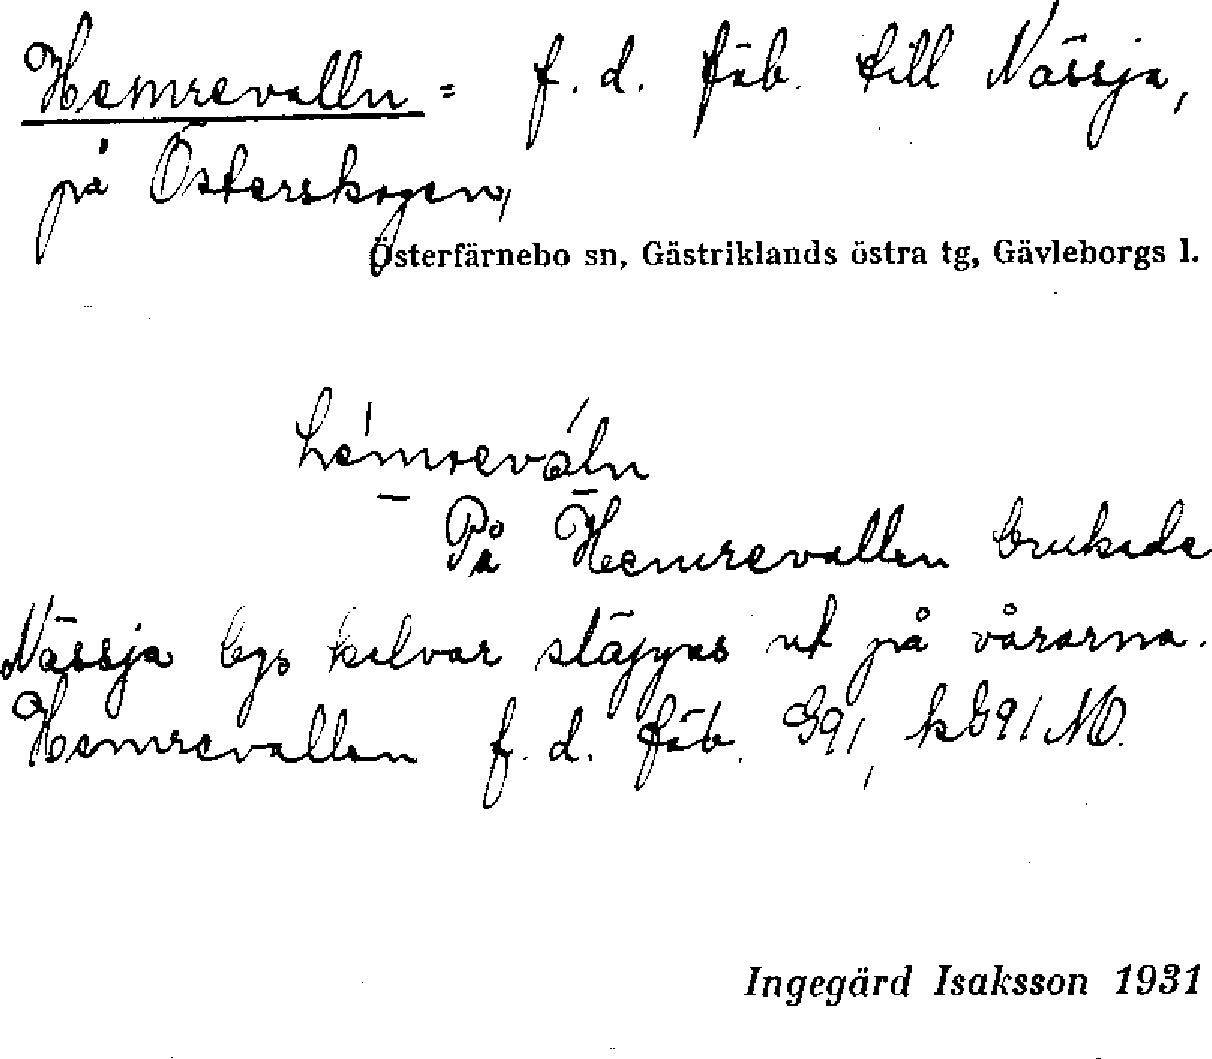 Hemrevalln = f. d. fäb. till Nässja,
på Österskogen,
Österfärnebo sn, Gästriklands östra tg, Gävleborgs l.
På Hemrevallen brukade
Nässja bys kalvar släppas ut på vårarna.
Hemrevallen f. d. fäb. G91, kG91 NO.
Ingegärd Isaksson 1931